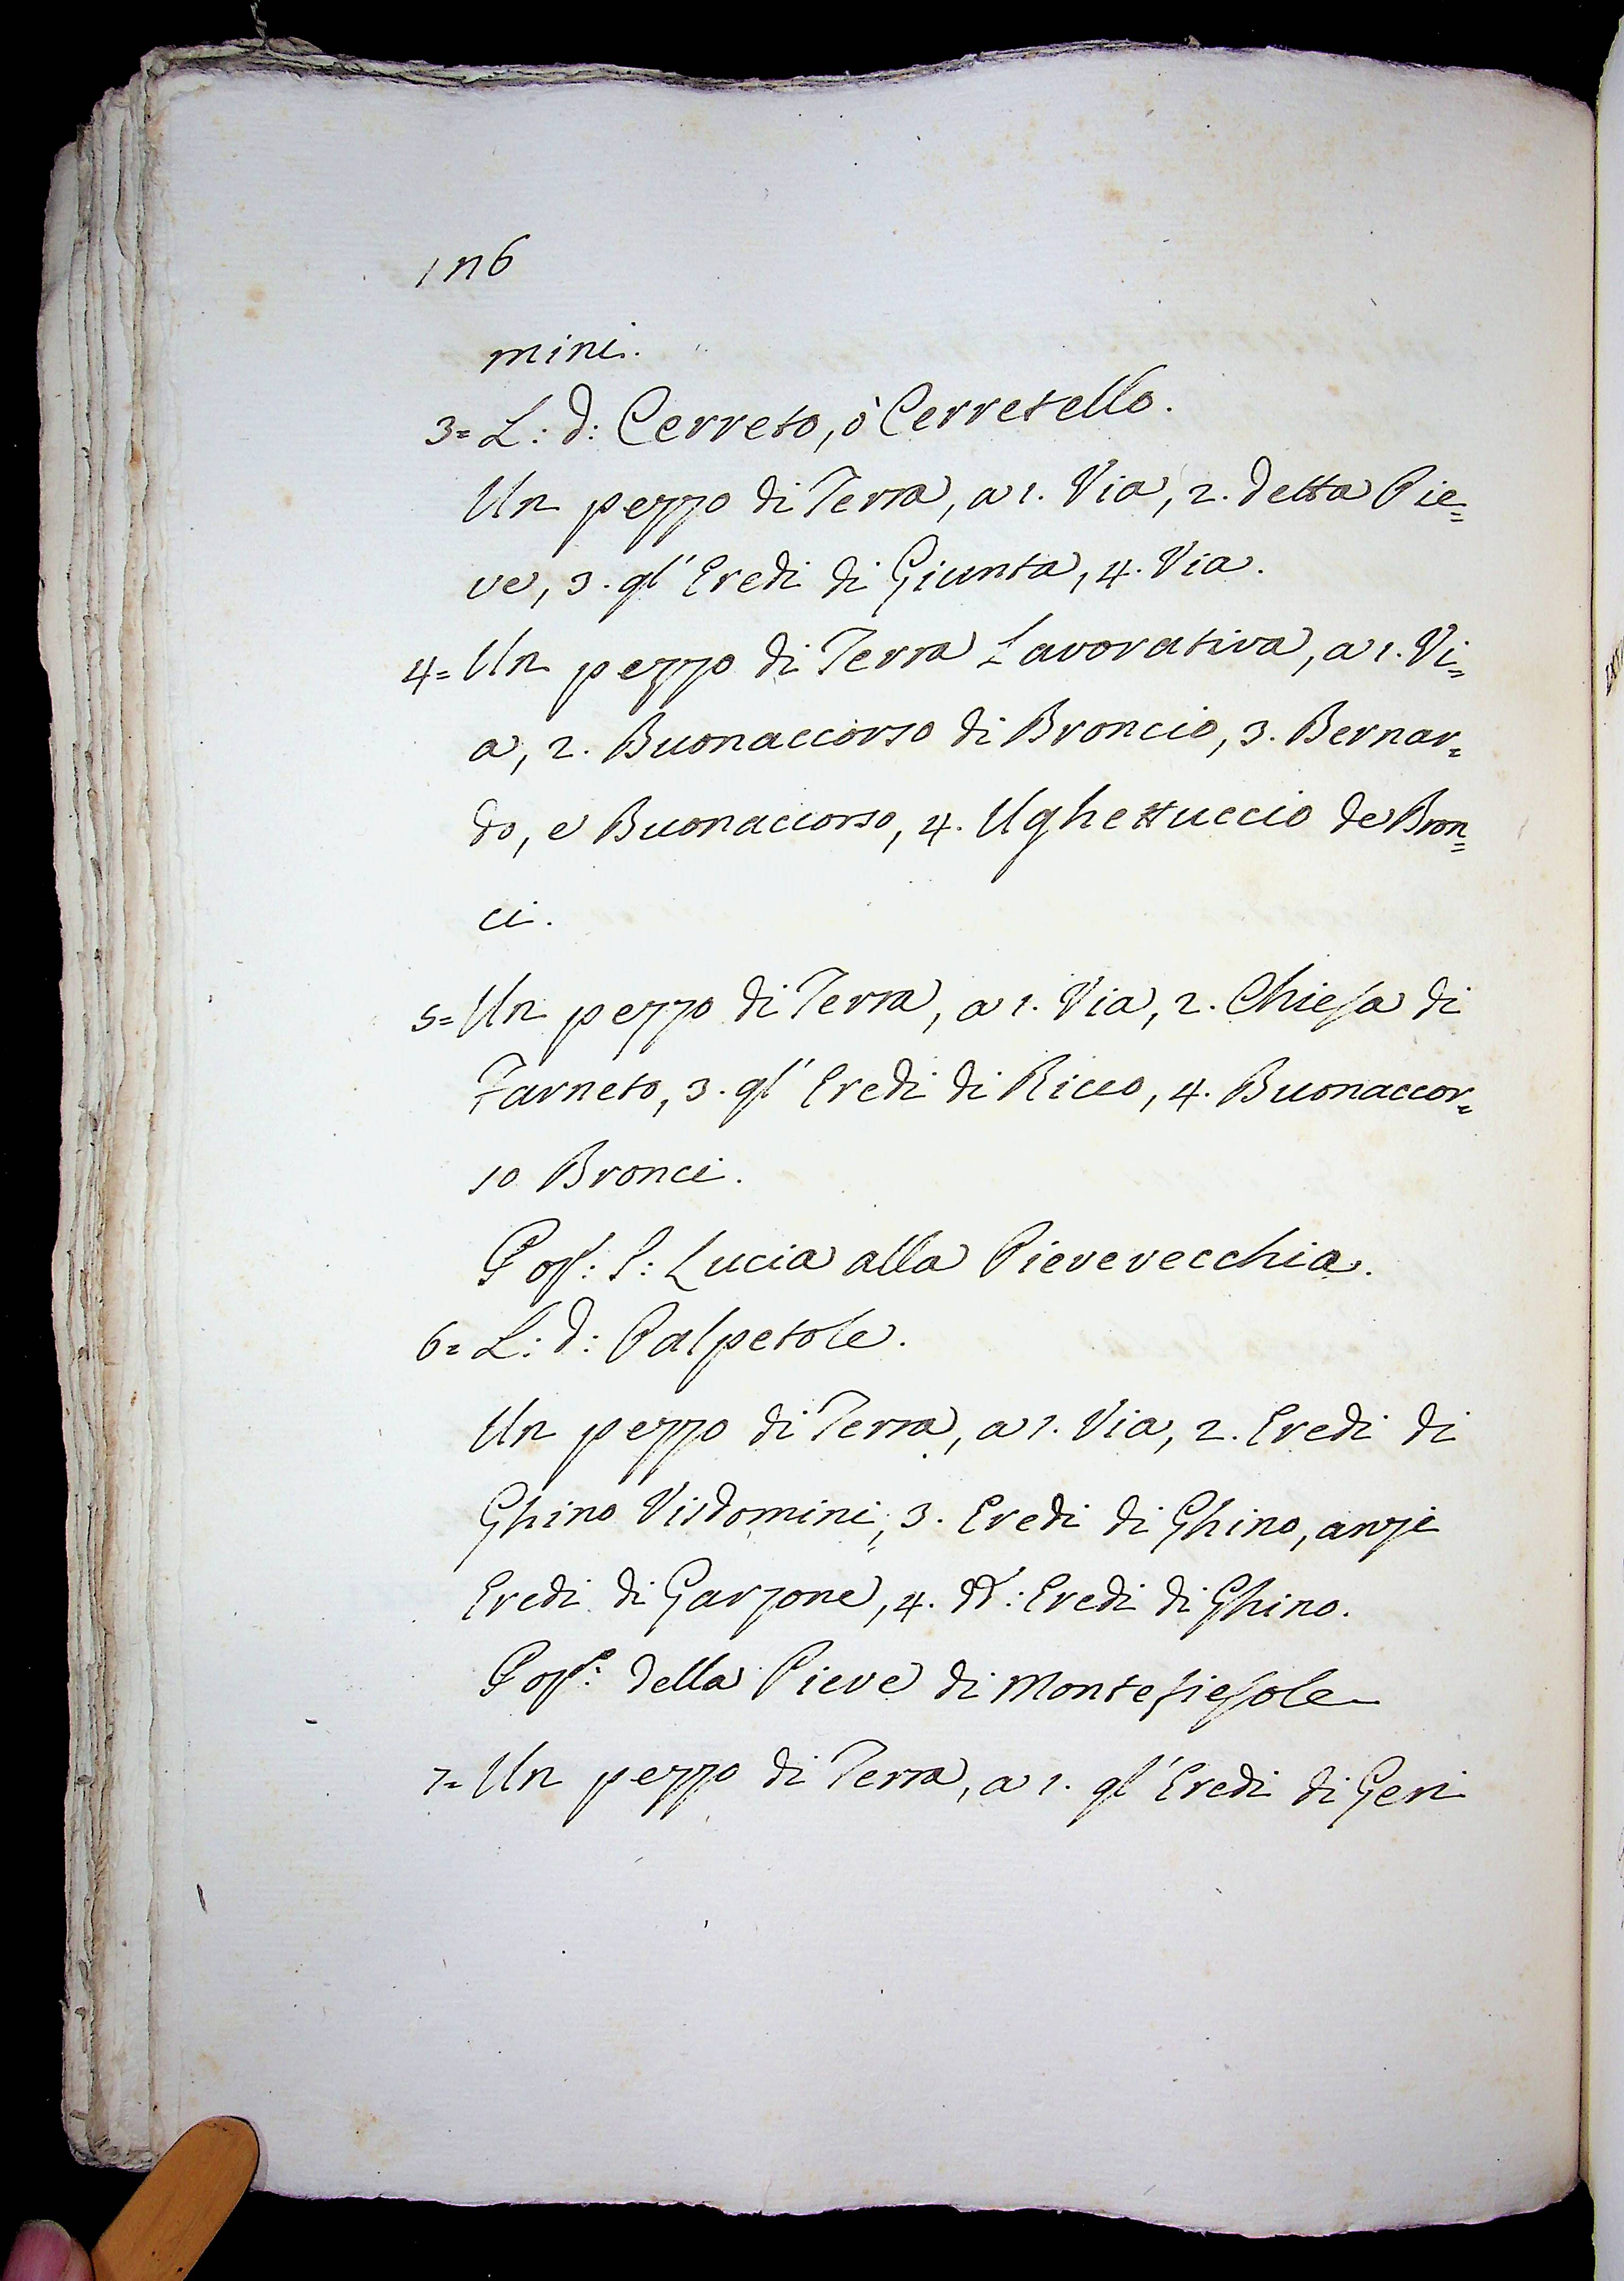 1n6
mini.
3= L: d: Cerreto, ò Cerretello.
Un pezzo di Terra, a 1. Via, 2. detta Pie=
ve, 3. gl' Eredi di Giunta, 4. Via.
4= Un pezzo di Terra Lavorativa, a 1. Vi=
a, 2. Buonaccorso di Broncio, 3. Bernar=
do, e Buonaccorso, 4. Ughettuccio de Bron=
ci.
5= Un pezzo di Terra, a 1. Via, 2. Chiesa di
Farneto, 3. gl' Eredi di Ricco, 4. Buonaccor=
so Bronci.
Pop: S: Lucia alla Pievevecchia.
6= L: d: Palpetole.
Un pezzo di Terra, a 1. Via, 2. Eredi di
Ghino Visdomini, 3. Eredi di Ghino, anzi
Eredi di Garzone, 4. dd: Eredi di Ghino.
Pop: della Pieve di Montefiesole
7= Un pezzo di Terra, a 1. gl' Eredi di Geri